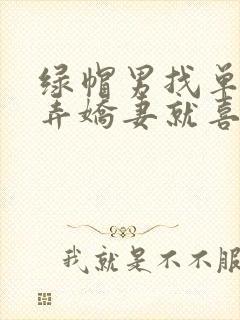 绿帽男找单
弄嬌妻就喜
我就是不不服